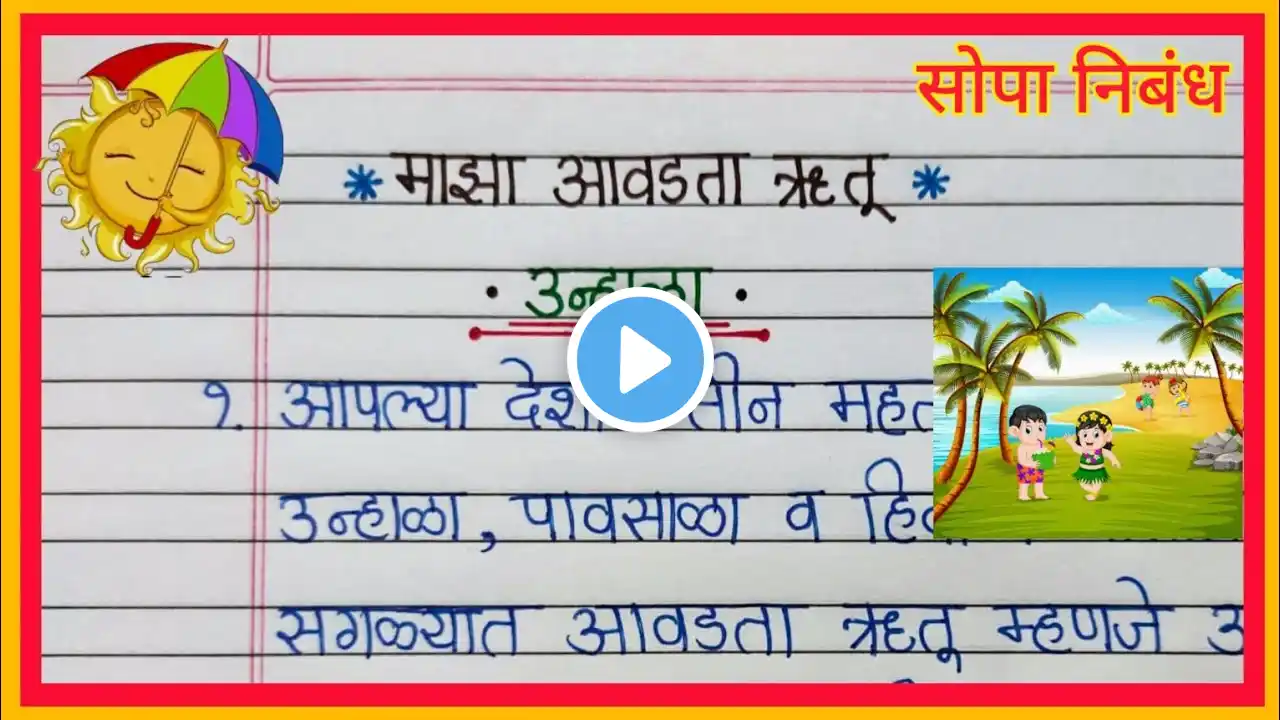 सोपा निबंध
* माझा आवडता ऋतू *
• उन्हाळा •
१. आपल्या तीन
उन्हाळा, पावसाळा व
सगळ्यात आवडता ऋतू म्हणजे